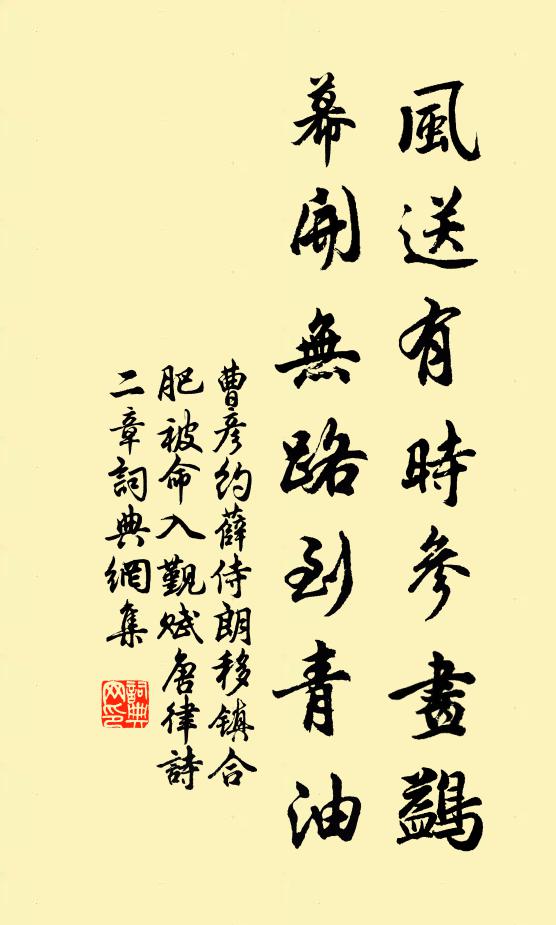 風送有時參畫鷁
幕開無路到青油
曹彦約薛侍朗移鎮合
肥被命入覲賦唐律詩
二章詞典網集
詞典
网印